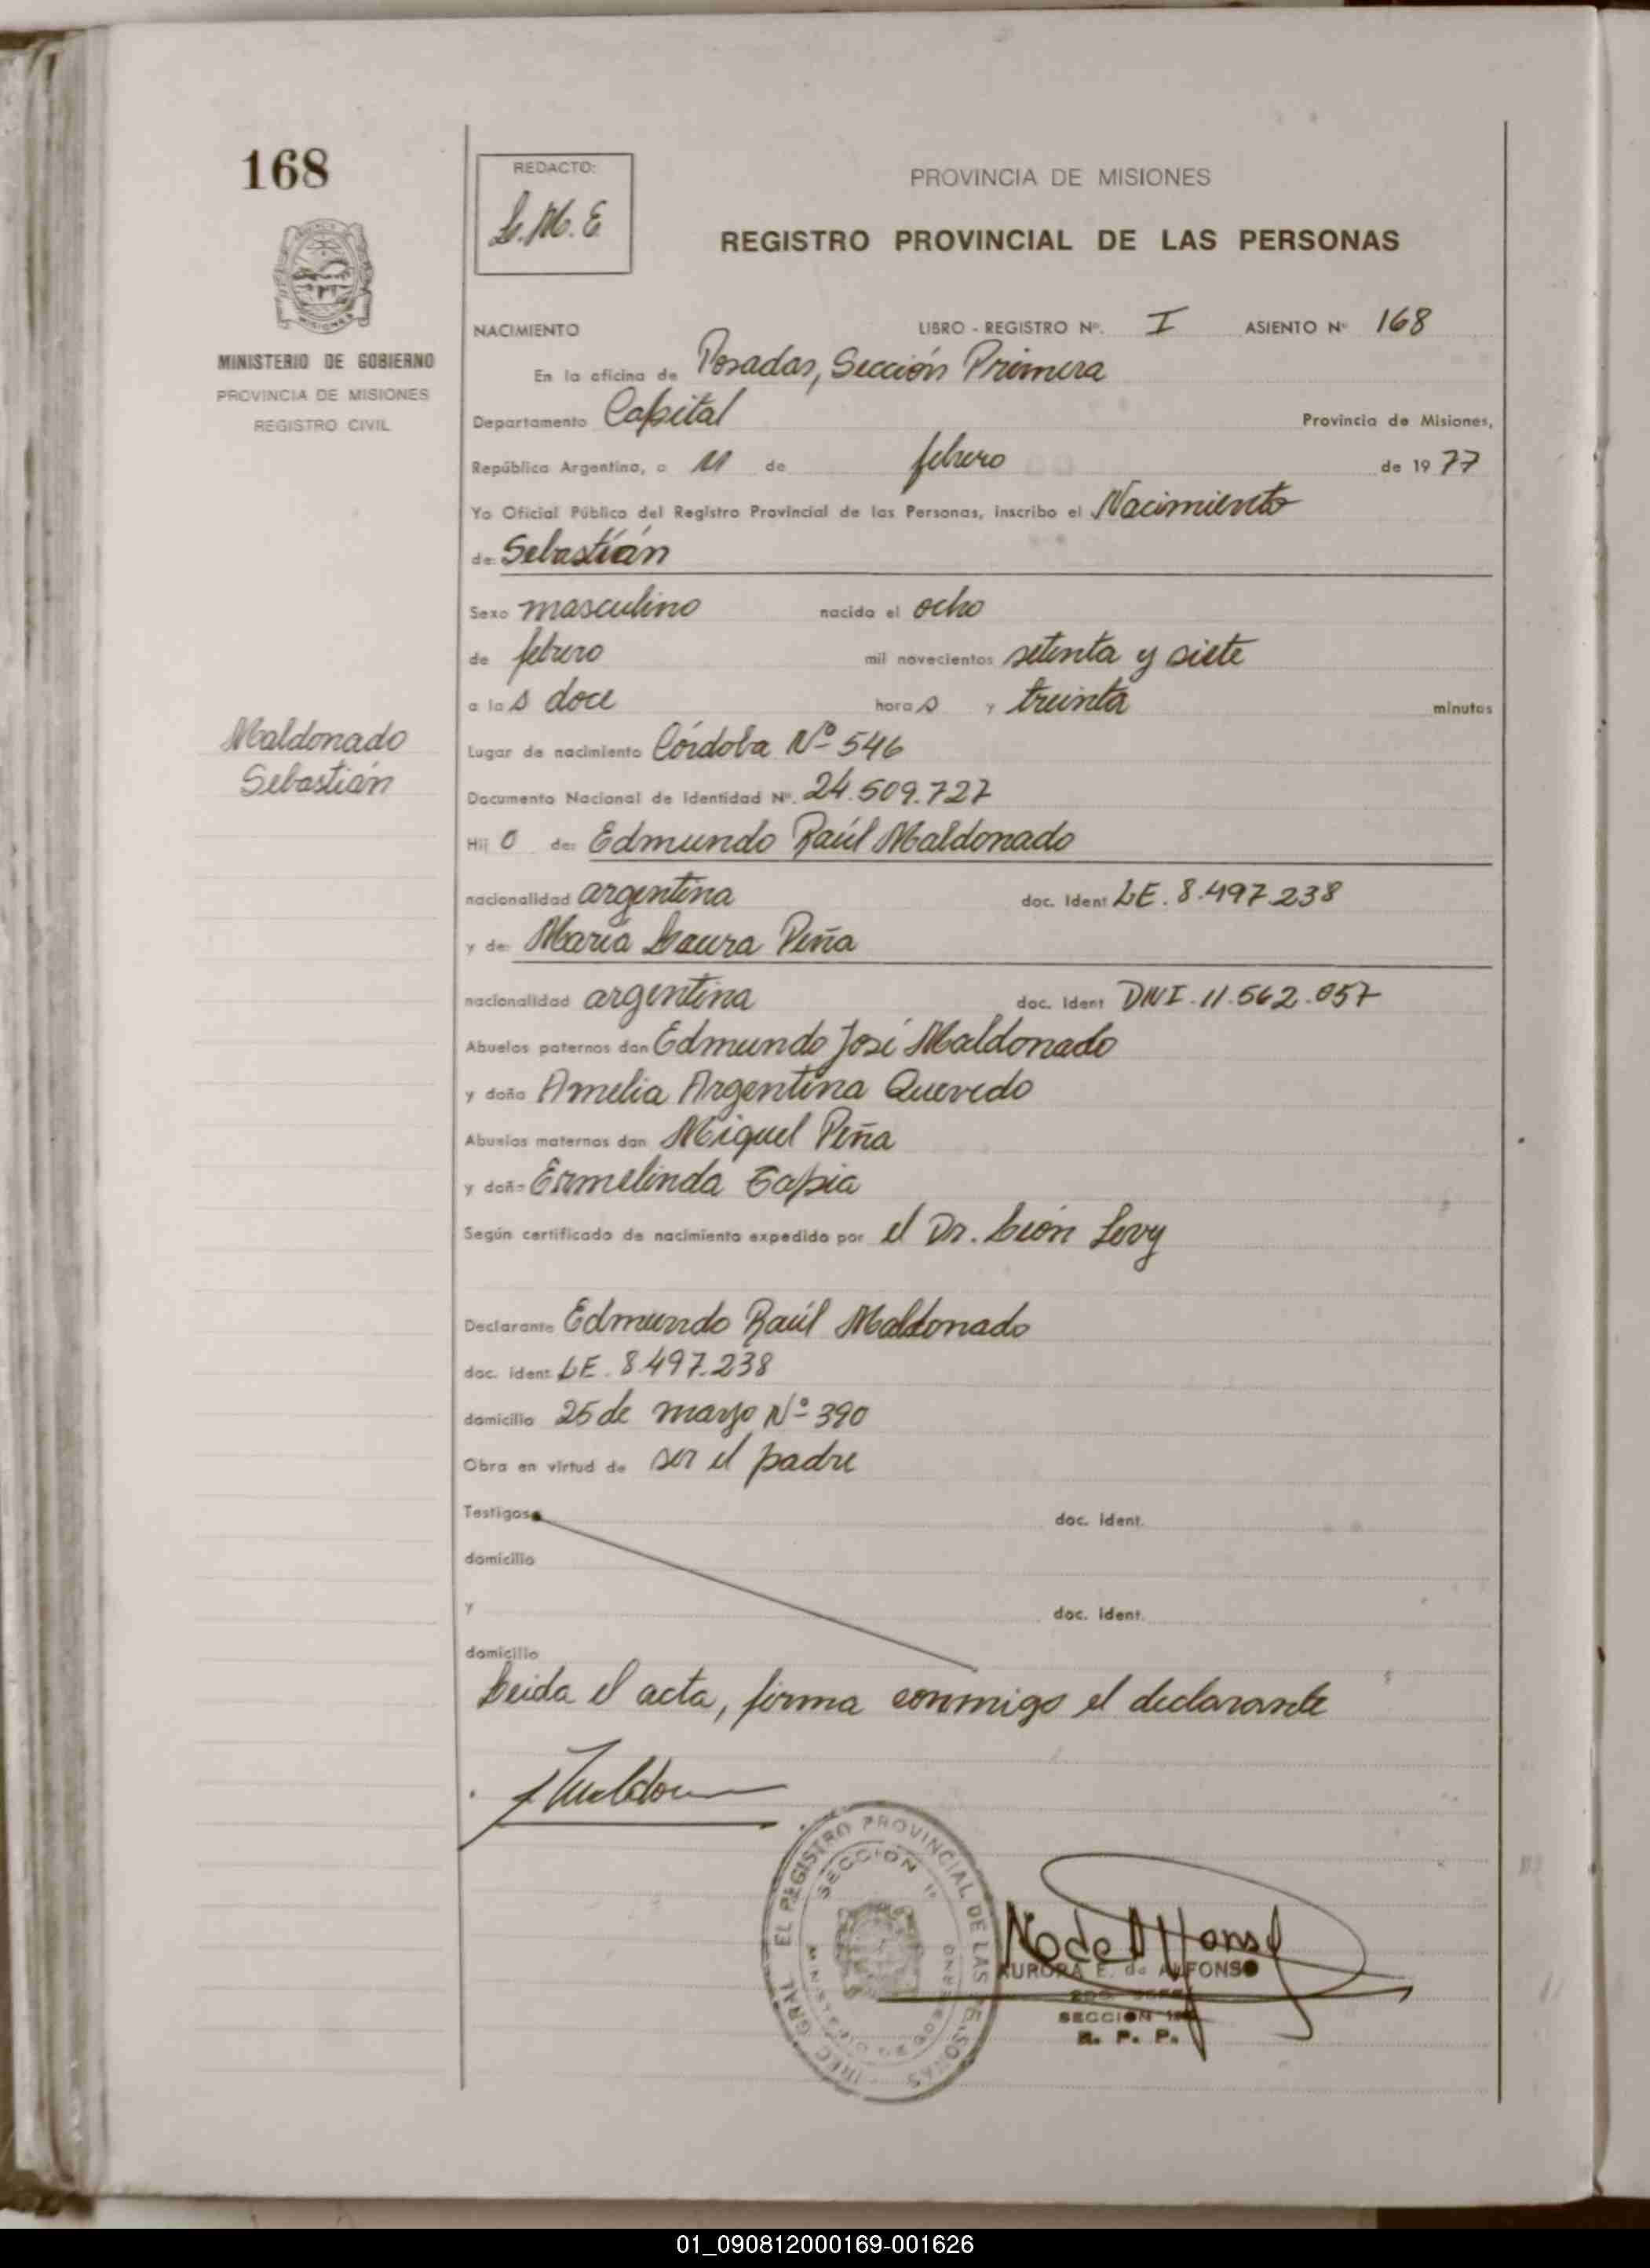 168
MINISTERIO DE GOBIERNO
PROVINCIA DE MISIONES
REGISTRO CIVIL
Maldonado
Sebastián
REDACTO:
L.M.E
PROVINCIA DE MISIONES
REGISTRO PROVINCIAL DE LAS PERSONAS
NACIMIENTO LIBRO - REGISTRO Nº. I ASIENTO Nº 168
En la oficina de Posadas, Sección Primera
Departamento Capital Provincia de Misiones,
República Argentina, a 11 de febrero de 1977
Yo Oficial Público del Registro Provincial de las Personas, inscribo el Nacimiento
de: Sebastián
Sexo masculino nacido el ocho
de febrero mil novecientos setenta y siete
a las doce horas y treinta minutos
Lugar de nacimiento Córdoba Nº 546
Documento Nacional de Identidad Nº. 24.509.727
Hijo de: Edmundo Raúl Maldonado
nacionalidad argentina doc. Ident LE. 8.497.238
y de: María Laura Peña
nacionalidad argentina doc. Ident DNI. 11.562.057
Abuelos paternos don Edmundo José Maldonado
y doña Amelia Argentina Quevedo
Abuelos maternos don Miguel Peña
y doña Ermelinda Tapia
Según certificado de nacimiento expedido por el Dr. León Levy
Declarante Edmundo Raúl Maldonado
doc. ident. LE. 8.497.238
domicilio 25 de mayo Nº 390
Obra en virtud de ser el padre
Testigos doc. ident.
domicilio
y doc. ident.
domicilio
Leida el acta, firma conmigo el declarante
EL REGISTRO PROVINCIAL DE LAS PERSONAS
SECCION
AURORA E. de ALFONSO
SECCION
R. P. P.
01_090812000169-001626